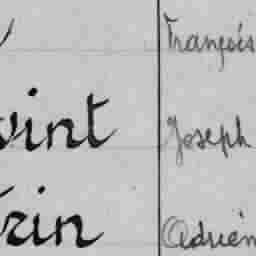 François
vint Joseph
rin Adrien